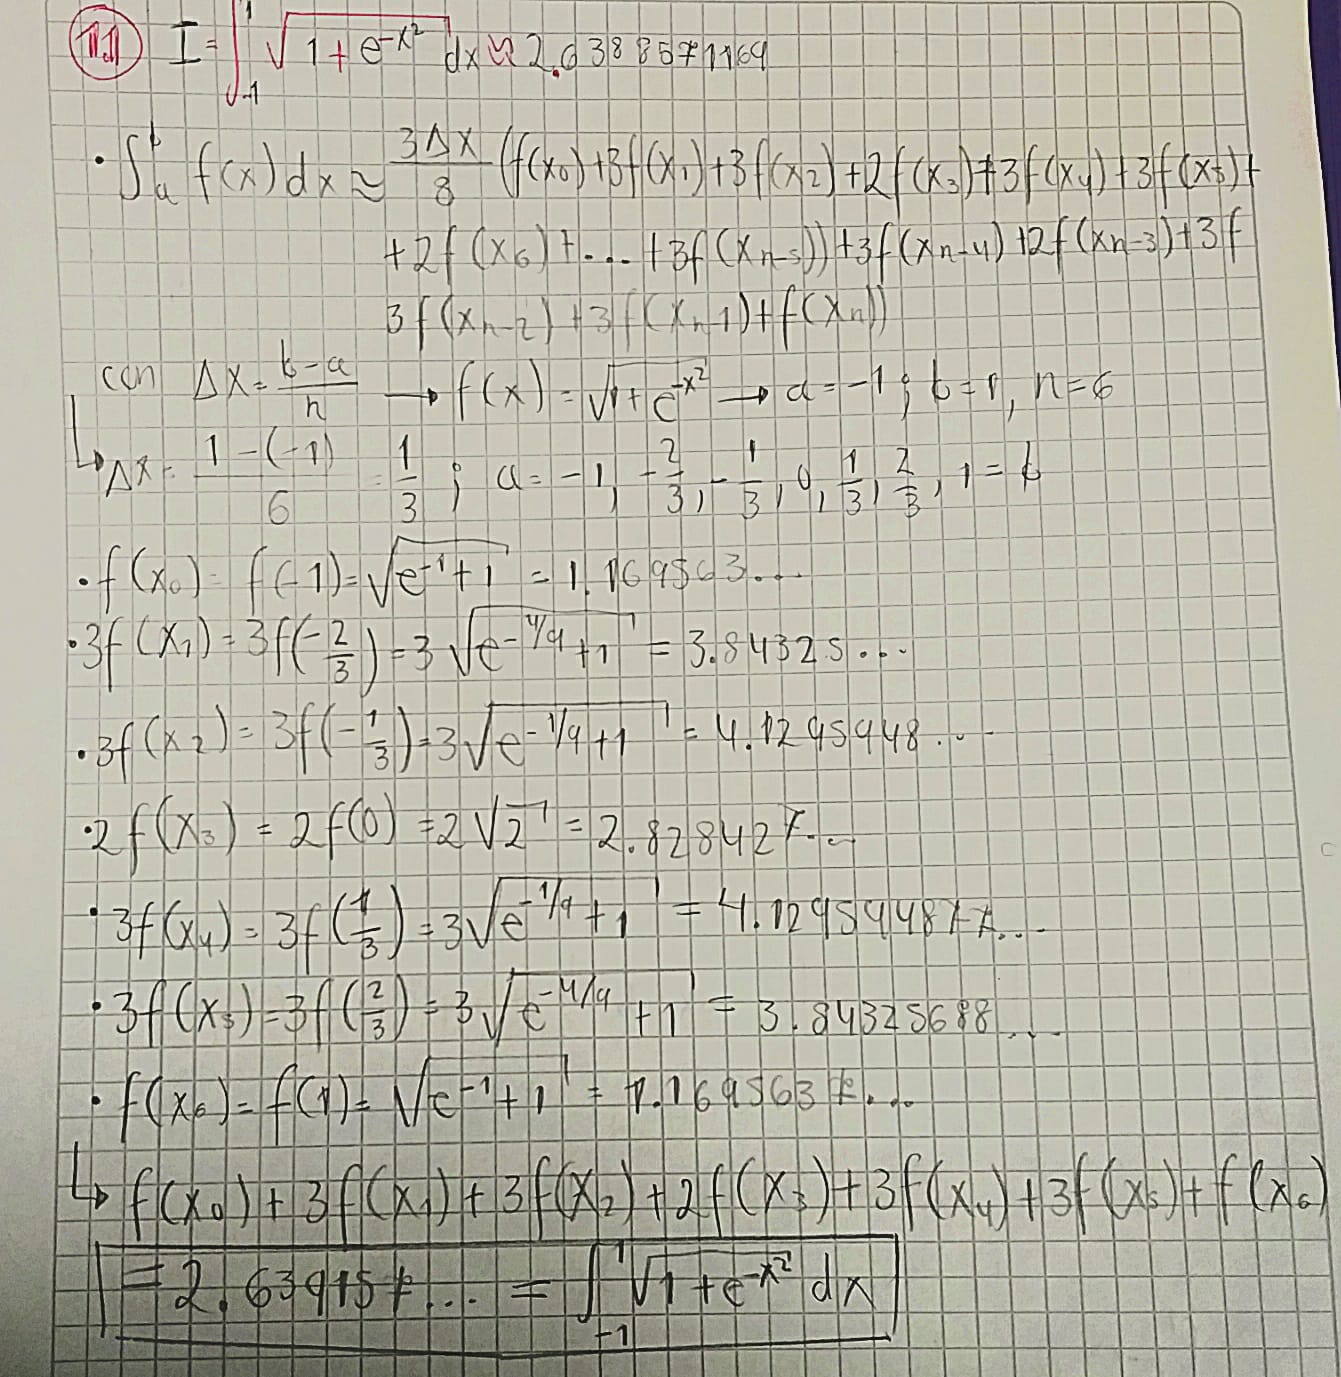 1.1 I = ∫_{-1}^{1} √(1+e^{-x²}) dx ≈ 2.6388571169
• ∫_a^b f(x)dx ≈ 3Δx/8 (f(x₀)+3f(x₁)+3f(x₂)+2f(x₃)+3f(x₄)+3f(x₅)+
+2f(x₆)+...+3f(x_{n-5}))+3f(x_{n-4})+2f(x_{n-3})+3f
3f(x_{n-2})+3f(x_{n-1})+f(x_n))
con Δx = b-a/n → f(x) = √(1+e^{-x²}) → a=-1; b=1, n=6
↳ Δx = 1-(-1)/6 = 1/3 ; a = -1, -2/3, -1/3, 0, 1/3, 2/3, 1 = b
• f(x₀) = f(-1) = √(e^{-1}+1) = 1.169563...
• 3f(x₁) = 3f(-2/3) = 3√(e^{-4/9}+1) = 3.84325...
• 3f(x₂) = 3f(-1/3) = 3√(e^{-1/9}+1) = 4.1295948...
• 2f(x₃) = 2f(0) = 2√2 = 2.828427...
• 3f(x₄) = 3f(1/3) = 3√(e^{-1/9}+1) = 4.129594877...
• 3f(x₅) = 3f(2/3) = 3√(e^{-4/9}+1) = 3.84325688...
• f(x₆) = f(1) = √(e^{-1}+1) = 1.1695637...
↳ f(x₀)+3f(x₁)+3f(x₂)+2f(x₃)+3f(x₄)+3f(x₅)+f(x₆)
= 2.639157... = ∫_{-1}^{1} √(1+e^{-x²}) dx